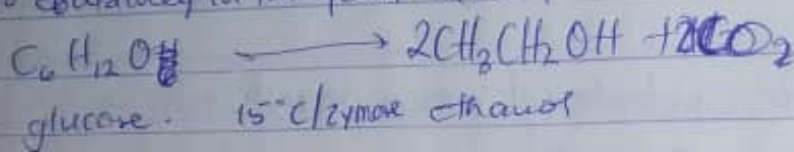 C₆H₁₂O₆ ⟶ 2CH₃CH₂OH + 2CO₂
glucose. 15°C/zymase ethanol